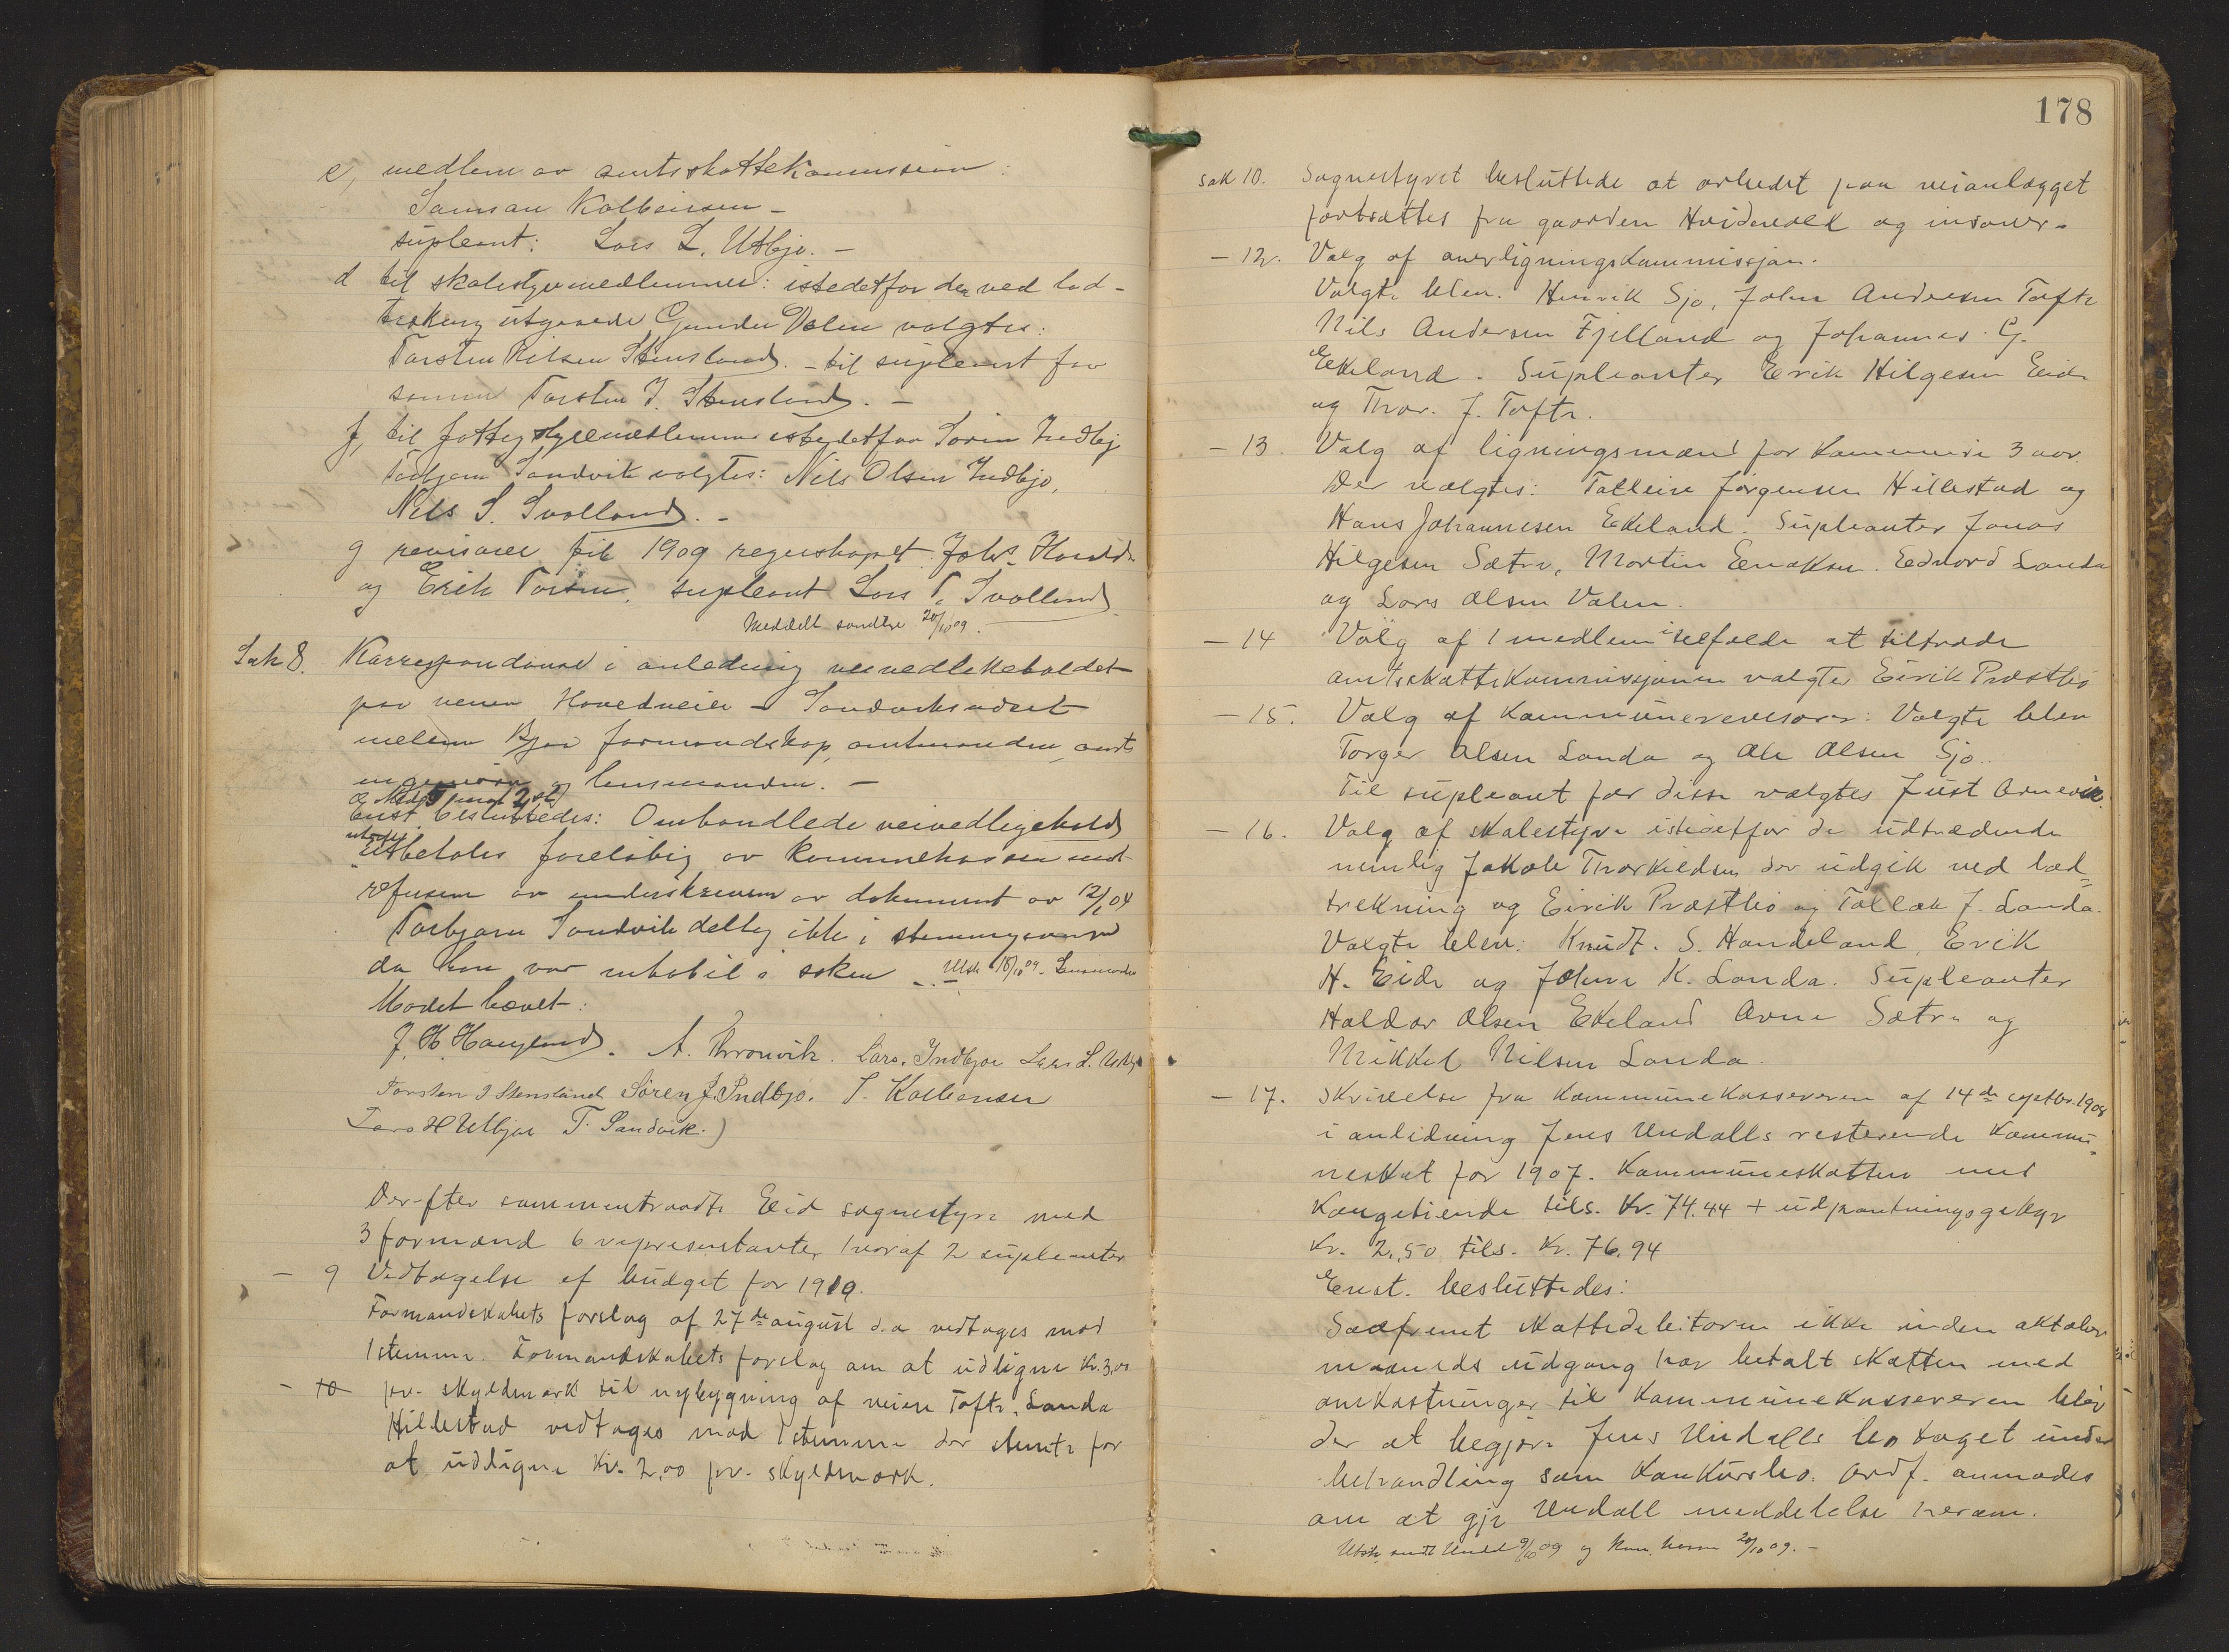 e, medlem av amtsskattekommission:
Samson Kolbeinsen –
supleant: Lars L. Utbjo. –
d til skolestyremedlemmer: istedetfor den ved lod-
trekning utgaaede Gunder Valen valgtes:
Torsten Nilsen Stensland. – til supleant for
samme Torsten J. Stensland. –
f, til fattigstyremedlemmer istedetfor Sørin Indbjo
Torbjørn Sandvik valgtes: Nils Olsen Indbjo,
Nils S. Svolland. –
g revisorer til 1909 regnskapet: Johs.
og Erik Torsen, supleant Lars T. Svolland
Meddelt samtlige 20/10 09.
Sak 8. Korrespondanse i anledning veivedlikeholdet
paa veien Hovedveien – Sandviksvaset
mellem Bjoa formandskap, amtmanden, amts
ingeniøren og lensmanden. –
Enst. besluttedes: Omhandlede veivedligehold
utbetales foreløbig av kommunekassen mot
refusion av underskriverne av dokument av 12/1 04
Torbjørn Sandvik deltog ikke i stemmegivningen
da han var inhabil i saken. – Utsk 18/10 09. Lensmanden
Mødet hævet:
J. H. Haugland. A. Thronvik. Lars. Indbjoe Lars L. Utbjo
Torsten J Stensland Søren J. Indbjo. S. Kolbensen
Lars H Utbjoe T. Sandvik.
Derefter sammentraadte Eid sognestyre med
3 formænd 6 representanter hvoraf 2 supleanter
– 9 Vedtagelse af budget for 1910.
Formandskabets forslag af 27de august d.a vedtages mod
1 stemme. Formandskabets forslag om at udligne Kr. 3,00
– 10 pr. skyldmark til nybygning af veien Tofte, Landa
Hillestad vedtages mod 1 stemme der stemte for
at udligne Kr. 2,00 pr. skyldmark.
178
Sak 10. Sognestyret besluttede at arbeidet paa veianlægget
fortsættes fra gaarden Hvidevold og insover.
– 12. Valg af overligningskommissjon.
Valgte blev. Henrik Sjo, John Andersen Tofte
Nils Andersen Fjelland og Johannes G.
Ekeland. Supleanter Erik Hilgesen Eide
og Thor. J. Tofte.
– 13. Valg af ligningsmænd for kommende 3 aar.
Der valgtes: Talleiv Jørgensen Hillestad og
Hans Johannesen Ekeland. Supleanter Jonas
Hilgesen Sætre, Martin Eriksen. Edvard Landa
og Lars Olsen Valen.
– 14 Valg af 1 medlem i tilfælde at tiltræde
amtsskattekommissjonen valgtes Eirik Præstbø
– 15. Valg af kommunerevisorer: Valgte blev
Torger Olsen Landa og Ole Olsen Sjo.
Til supleant for disse valgtes Just Arnevik.
– 16. Valg af skolestyre istedetfor de udtrædende
nemlig Jakob Thorkildsen der udgik ved lod=
trekning og Eirik Præstbø og Tollak J. Landa.
Valgte blev: Knudt. S. Handeland, Erik
H. Eide og Johan K. Landa. Supleanter
Haldor Olsen Ekeland Arne Sætre og
Mikkel Nilsen Landa.
– 17. Skrivelse fra kommunekassereren af 14de septbr. 1908
i anledning Jens Undalls resterende kommu-
neskat for 1907. Kommuneskatten med
Kongetiende tils. Kr. 74.44 + udpantningsgebyr
Kr. 2,50 tils. Kr. 76,94
Enst. besluttedes:
Saafremt skattedebitoren ikke inden oktober
maaneds udgang har betalt skatten med
omkostninger til kommunekassereren blev
der at begjære Jens Undalls bo taget under
behandling som konkursbo. Ordf. anmodes
om at gje Undall meddelelse herom.
Utsk. sendt Undal 9/10 09 og kom. kassr 20/10 09. –